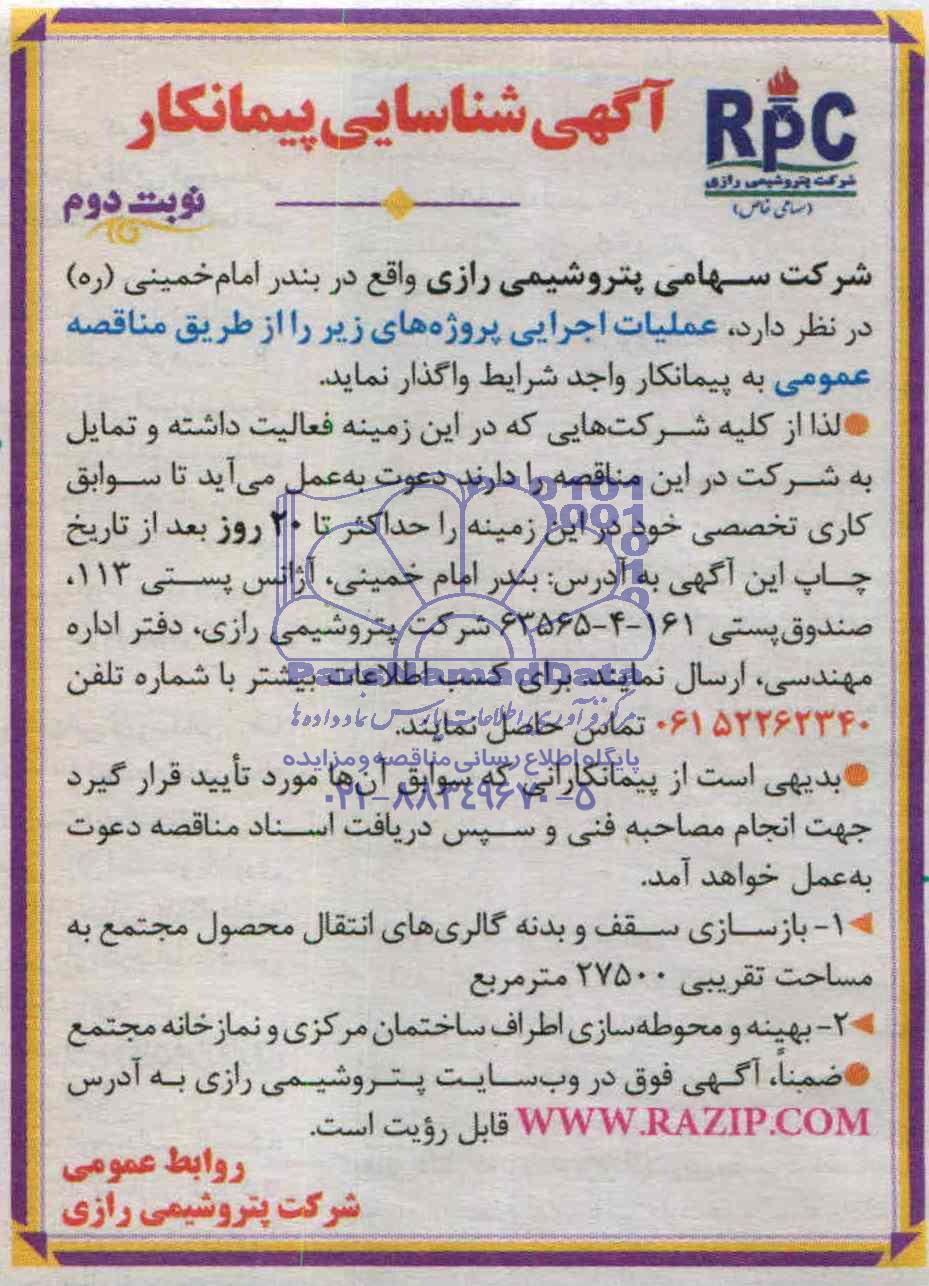 آگهی شناسایی پیمانکار
RPC
شرکت پتروشیمی رازی
(سهامی خاص)
نوبت دوم
شرکت سهامی پتروشیمی رازی واقع در بندر امام‌خمینی (ره)
در نظر دارد، عملیات اجرایی پروژه‌های زیر را از طریق مناقصه
عمومی به پیمانکار واجد شرایط واگذار نماید.
لذا از کلیه شرکت‌هایی که در این زمینه فعالیت داشته و تمایل
به شرکت در این مناقصه را دارند دعوت به‌عمل می‌آید تا سوابق
کاری تخصصی خود در این زمینه را حداکثر تا ۲۰ روز بعد از تاریخ
چاپ این آگهی به آدرس: بندر امام خمینی، آژانس پستی ۱۱۳،
صندوق‌پستی ۱۶۱-۴-۶۳۵۶۵ شرکت پتروشیمی رازی، دفتر اداره
مهندسی، ارسال نمایند. برای کسب اطلاعات بیشتر با شماره تلفن
۰۶۱۵۲۲۶۲۳۴۰ تماس حاصل نمایند.
بدیهی است از پیمانکارانی که سوابق آن‌ها مورد تأیید قرار گیرد
جهت انجام مصاحبه فنی و سپس دریافت اسناد مناقصه دعوت
به‌عمل خواهد آمد.
۱- بازسازی سقف و بدنه گالری‌های انتقال محصول مجتمع به
مساحت تقریبی ۲۷۵۰۰ مترمربع
۲- بهینه و محوطه‌سازی اطراف ساختمان مرکزی و نمازخانه مجتمع
ضمناً، آگهی فوق در وب‌سایت پتروشیمی رازی به آدرس
WWW.RAZIP.COM قابل رؤیت است.
روابط عمومی
شرکت پتروشیمی رازی
ParsNamadData
پایگاه اطلاع رسانی مناقصه و مزایده
۰۲۱-۸۸۳۴۹۶۷۰-۵